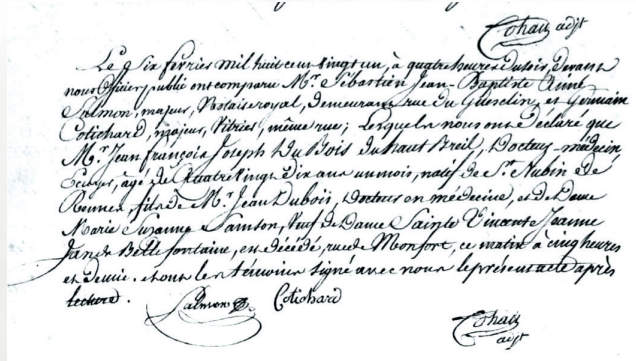 Cohan adjt
Le Six février Mil huit cent vingt un, à quatre heures du soir, devant
nous Officier public ont comparu Mr. Sébastien Jean-Baptiste Aimé
Salmon, majeur, Notaire royal, demeurant rue du Guesclin, et Germain
Cotichard, majeur, Vitrier, même rue; Lesquels nous ont déclaré que
Mr. Jean françois Joseph Du Bois du haut Breil, Docteur-médecin
Ecuyer, âgé de Quatre vingt dix ans un mois, natif de St. Aubin de
Rennes, fils de Mr. Jean Dubois, Docteur en médecine, et de Dame
Marie Suzanne Samson, Veuf de Dame Sainte Vincente Jeanne
Jan de Bellefontaine, est décédé, rue de Monfort, ce matin à cinq heures
et demie. et ont les témoins signé avec nous le présent acte après
lecture.
Salmon Cotichard
Cohan
adjt